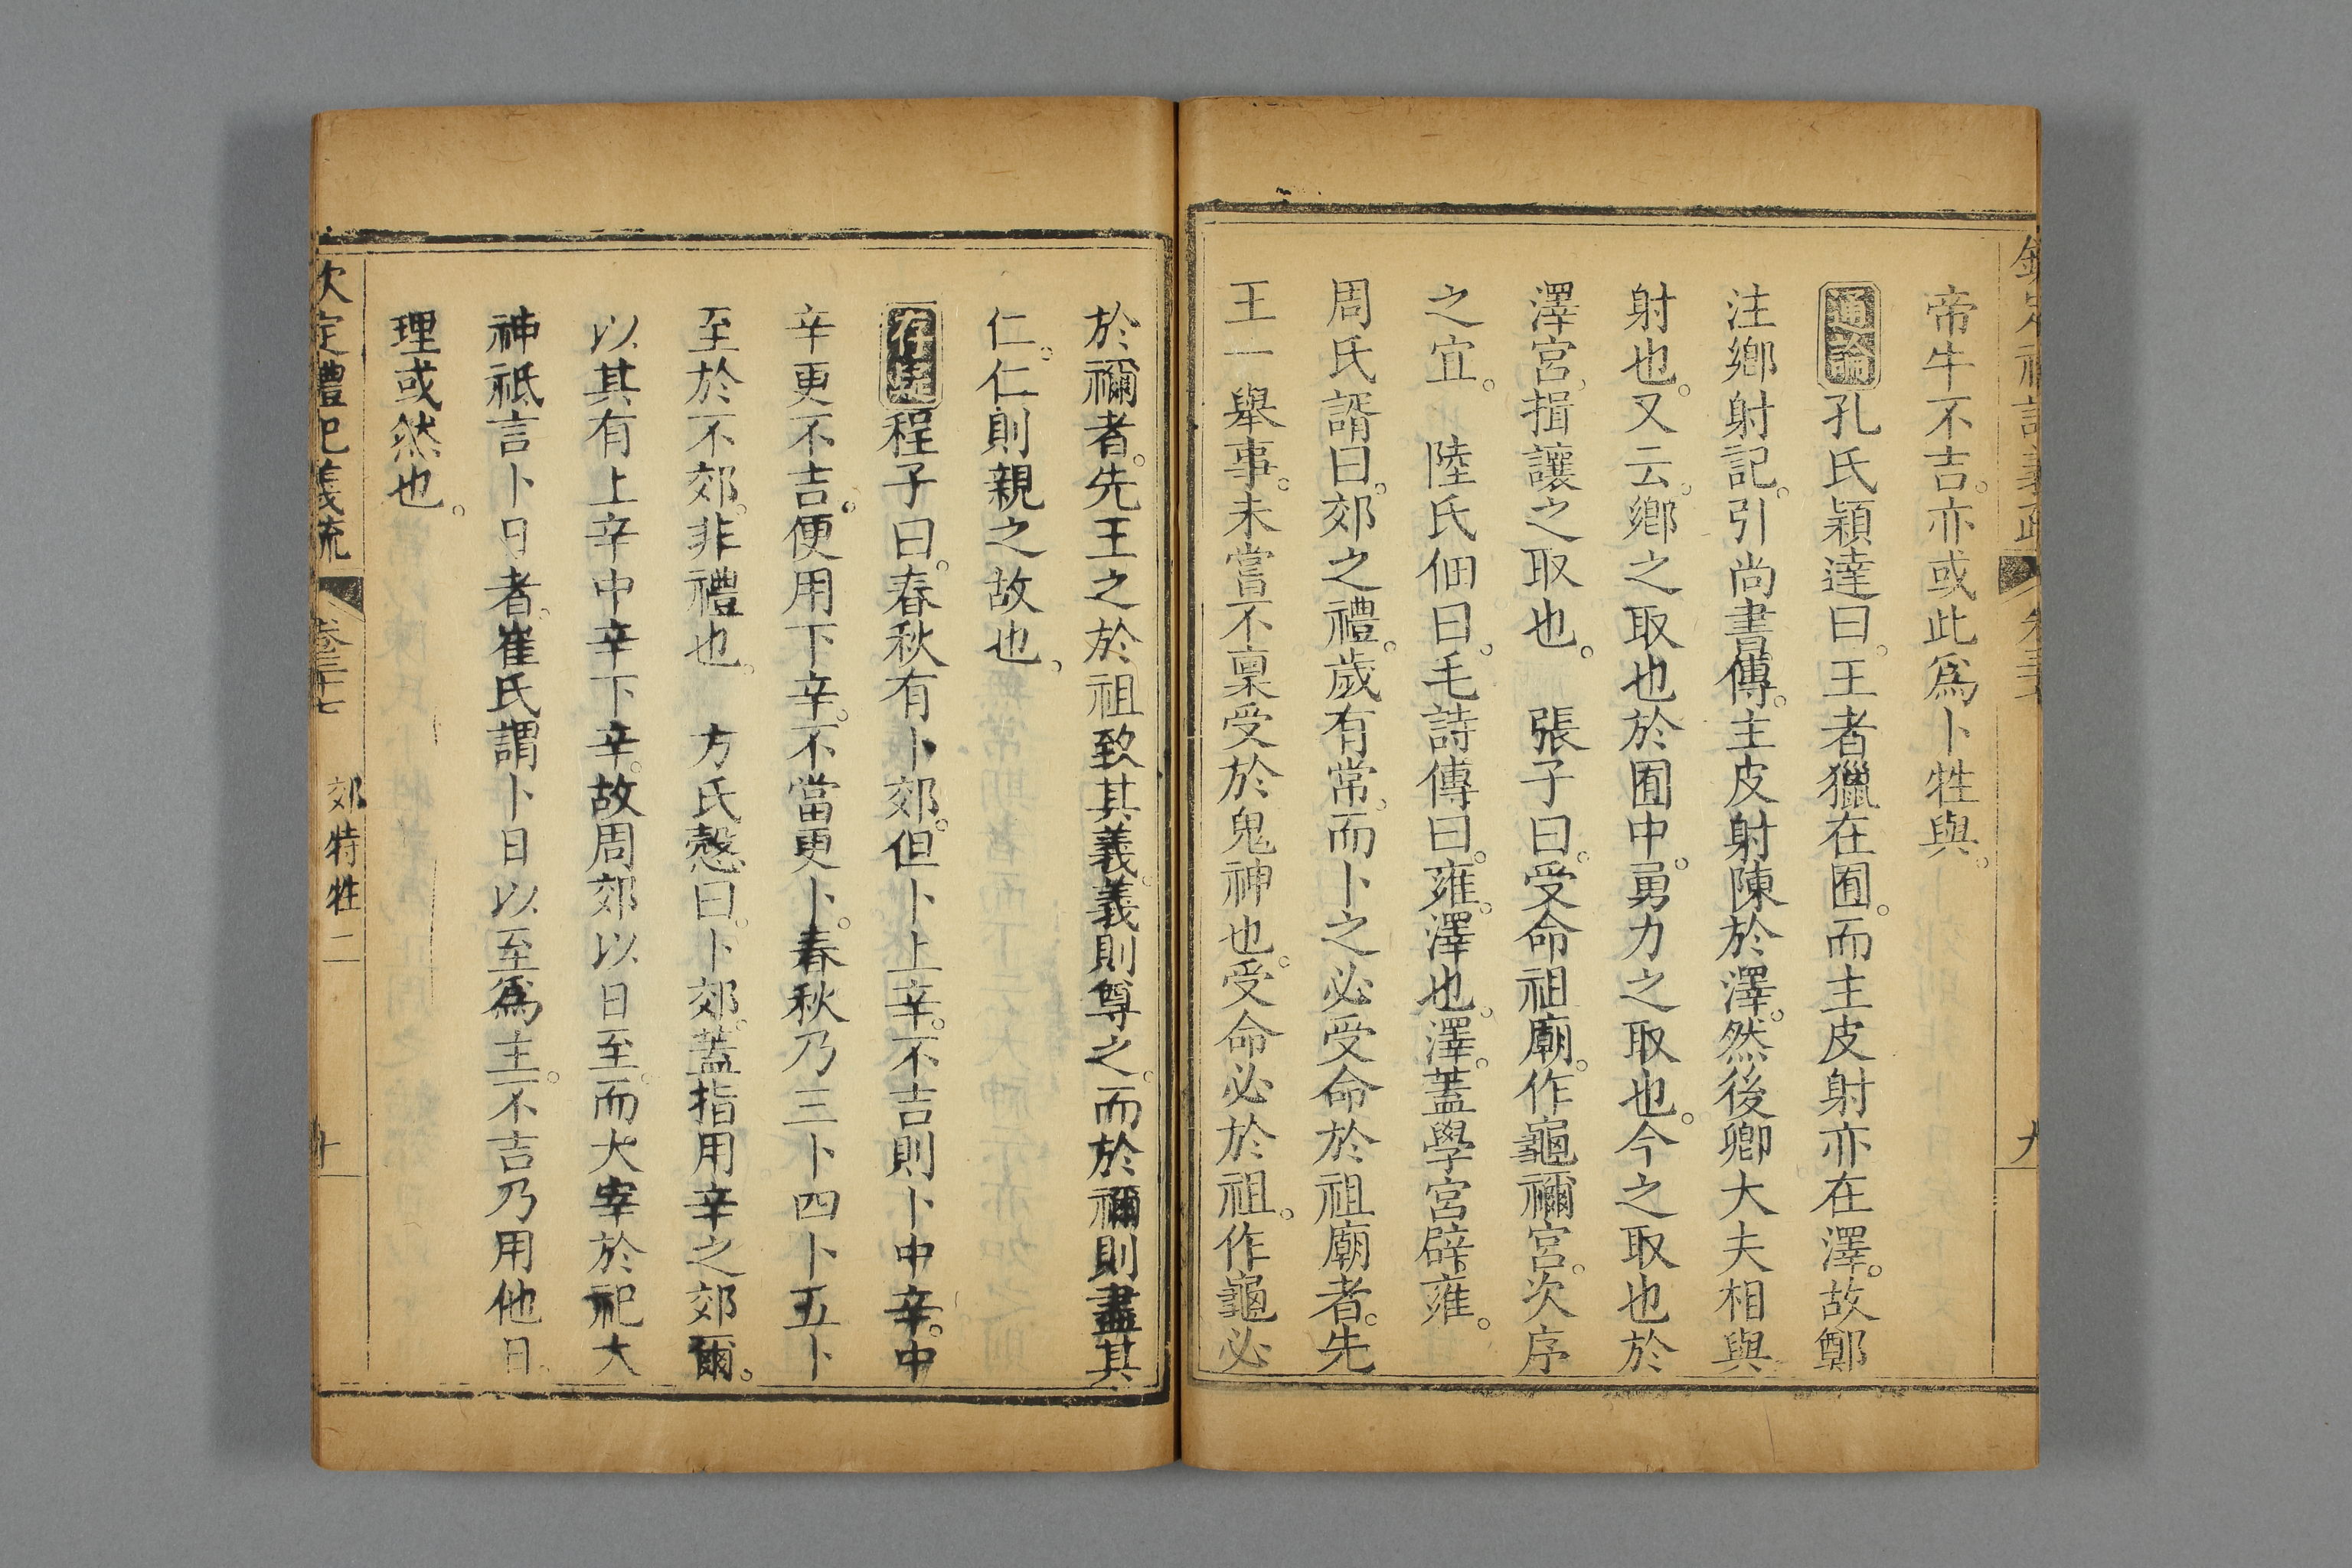 帝牛不吉。亦或此爲卜牲與。
通論孔氏穎達曰。王者獵在囿。而主皮射亦在澤。故鄭
注鄉射記。引尚書傳。主皮射陳於澤。然後卿大夫相與
射也。又云。鄉之取也於囿中。勇力之取也。今之取也於
澤宮。揖讓之取也。　張子曰。受命祖廟。作龜禰宮。次序
之宜。　陸氏佃曰。毛詩傳曰。雍。澤也。澤。蓋學宮辟雍。
周氏諝曰。郊之禮。歲有常。而卜之必受命於祖廟者。先
王一舉事。未嘗不稟受於鬼神也。受命必於祖。作龜必
於禰者。先王之於祖致其義。義則尊之。而於禰則盡其
仁。仁則親之故也。
存疑程子曰。春秋有卜郊。但卜上辛。不吉則卜中辛。中
辛更不吉。便用下辛。不當更卜。春秋乃三卜四卜五卜
至於不郊。非禮也。　方氏慤曰。卜郊。蓋指用辛之郊爾。
以其有上辛中辛下辛。故周郊以日至。而大宰於祀大
神祇言卜日者。崔氏謂卜日以至爲主。不吉乃用他日。
理或然也。
欽定禮記義疏 卷三十七 郊特牲二 十